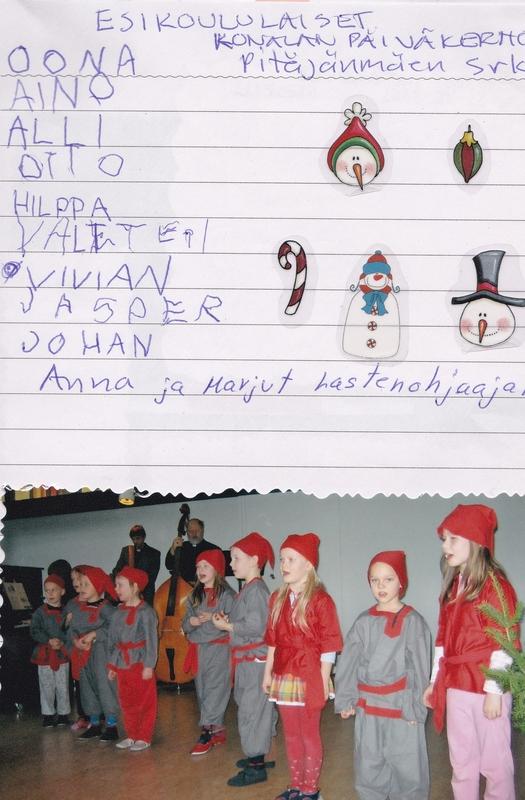 ESIKOULULAISET
KONALAN PÄIVÄKERHO
Pitäjänmäen srk
OONA
AINO
ALLI
OTTO
HILPPA
VALTTERI
VIVIAN
JASPER
JOHAN
Anna ja Marjut Lastenohjaajat